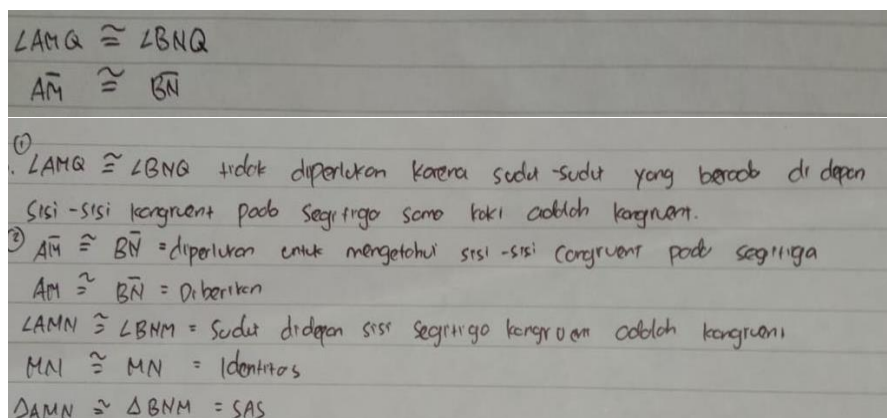 ∠AMQ ≅ ∠BNQ
A̅M̅ ≅ B̅N̅
①
. ∠AMQ ≅ ∠BNQ tidak diperlukan karena sudut-sudut yang berada di depan
sisi-sisi kongruent pada segitiga sama kaki adalah kongruent.
② A̅M̅ ≅ B̅N̅ = diperlukan untuk mengetahui sisi-sisi congruent pada segitiga
AM ≅ B̅N̅ = Diberikan
∠AMN ≅ ∠BNM = Sudut didepan sisi segitiga kongruen adalah kongruen
MN ≅ MN = Identitas
△AMN ≅ △BNM = SAS